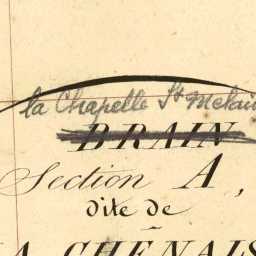 la Chapelle St Melain
BRAIN
Section A,
dite de
LA CHÊNAIS